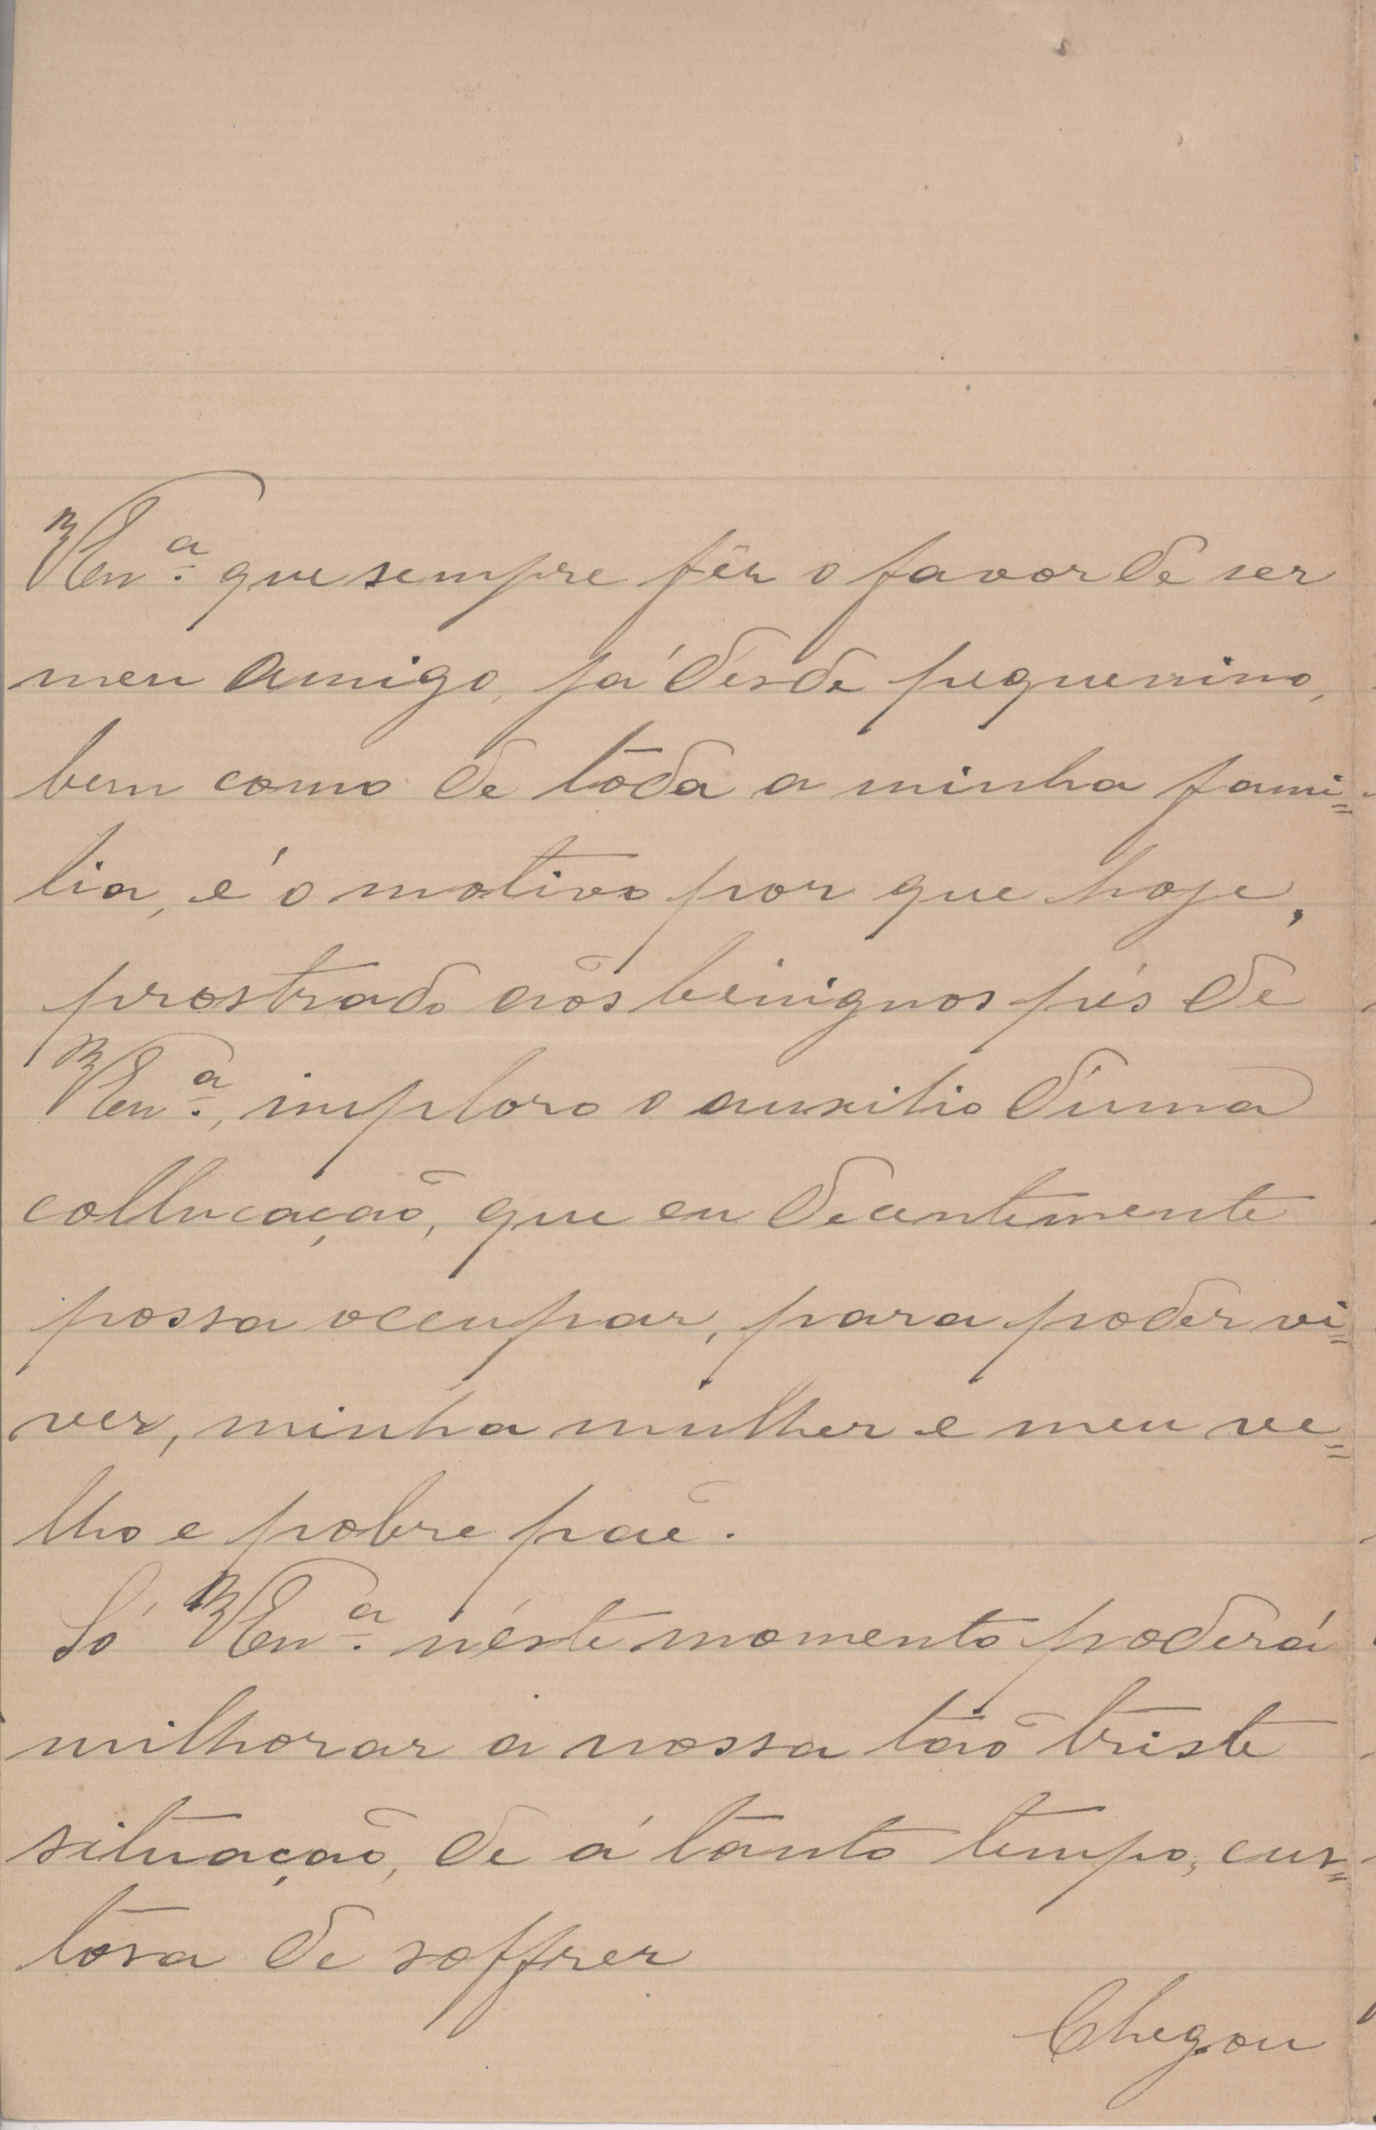 V Ex.ª que sempre fêz o favor de ser
meu amigo, já desde pequenino,
bem como de tôda a minha fami=
lia, é o motivo por que hoje,
prostrado aõs benignos pés de
V Ex.ª, imploro o auxilio d'uma
collucação, que eu decentemente
possa occupar, para poder vi=
ver, minha mulher e meu ve=
lho e pobre pae.
Só V Ex.ª néste momento poderá
milhorar a nossa tão triste
situação, de á tanto tempo, cus=
tosa de soffrer
Chegou